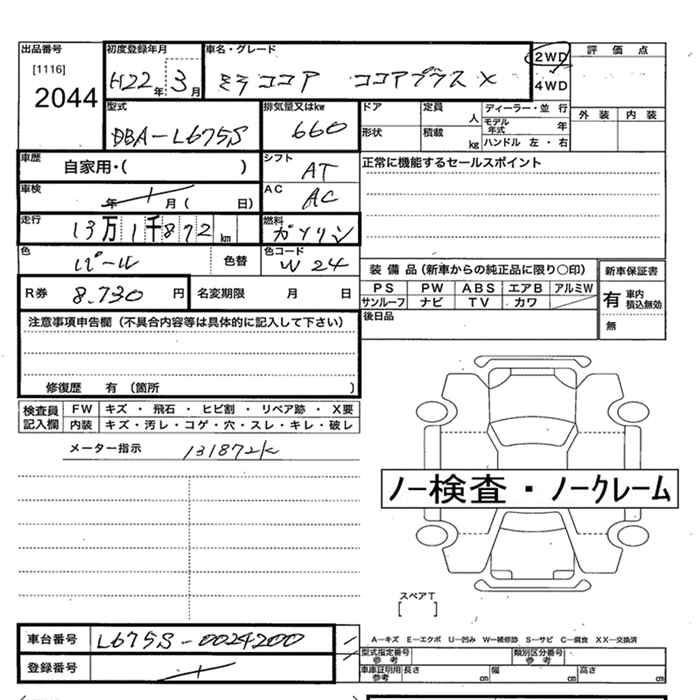 出品番号 初度登録年月 車名・グレード 2WD 評価点
[1116] 2044 H22年 3月 ミラココア ココアプラス X 4WD
外装 内装
型式 排気量又はkw ドア 定員 人 ディーラー・並行
DBA-L675S 660 モデル年式 年
形状 積載 kg ハンドル 左・右
車歴 自家用・( ) シフト AT 正常に機能するセールスポイント
車検 年 月 ( 日) AC AC
走行 13万1千872km 燃料 ガソリン
色 パール 色替 色コード W24
装備品(新車からの純正品に限り○印) 新車保証書
R券 8.730円 名変期限 月 日 PS PW ABS エアB アルミW 有 車内積込無効
サンルーフ ナビ TV カワ
注意事項申告欄(不具合内容等は具体的に記入して下さい) 後日品 無
修復歴 有 (箇所 )
検査員記入欄 FW キズ・飛石・ヒビ割・リペア跡・X要
内装 キズ・汚レ・コゲ・穴・スレ・キレ・破レ
メーター指示 131872K
ノー検査・ノークレーム
スペアT
[ ]
車台番号 L675S-0024200 A-キズ E-エクボ U-凹み W-補修跡 S-サビ C-腐食 XX-交換済
型式指定番号 参考 類別区分番号 参考
登録番号 車庫証明用 参考 長さ cm 幅 cm 高さ cm